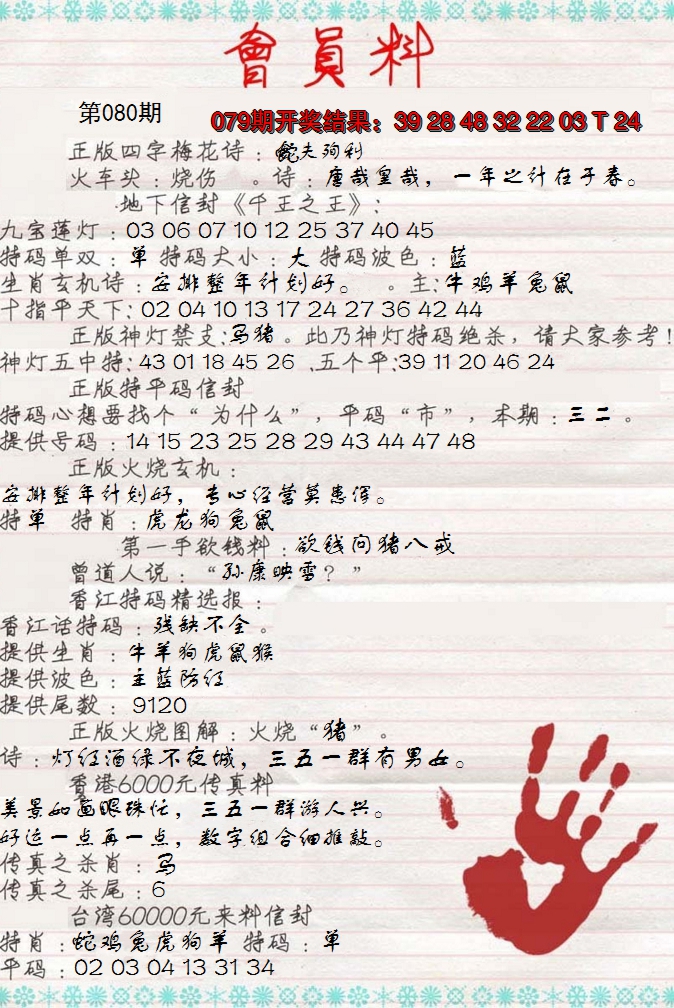 會員料
第080期
079期开奖结果：39 28 48 32 22 03 T 24
正版四字梅花诗：蛇夫殉利
火车头：烧伤 。诗：唐哉皇哉，一年之计在于春。
地下信封《千王之王》：
九宝莲灯：03 06 07 10 12 25 37 40 45
特码单双：单 特码大小：大 特码波色：蓝
生肖玄机诗：安排整年计划好。 。主：牛鸡羊兔鼠
十指平天下：02 04 10 13 17 24 27 36 42 44
正版神灯禁支：马猪。此乃神灯特码绝杀，请大家参考！
神灯五中特：43 01 18 45 26 .五个平：39 11 20 46 24
正版特平码信封
特码心想要找个“为什么”，平码“市”，本期：三二。
提供号码：14 15 23 25 28 29 43 44 47 48
正版火烧玄机：
安排整年计划好，专心经营莫患浑。
特单 特肖：虎龙狗兔鼠
第一手欲钱料：欲钱问猪八戒
曾道人说：“孙康映雪？”
香江特码精选报：
香江话特码：残缺不全。
提供生肖：牛羊狗虎鼠猴
提供波色：主蓝防红
提供尾数：9120
正版火烧图解：火烧“猪”。
诗：灯红酒绿不夜城，三五一群有男女。
香港6000元传真料
美景如画眼珠忙，三五一群游人兴。
好运一点再一点，数字组合细推敲。
传真之杀肖：马
传真之杀尾：6
台湾60000元来料信封
特肖：蛇鸡兔虎狗羊 特码：单
平码：02 03 04 13 31 34